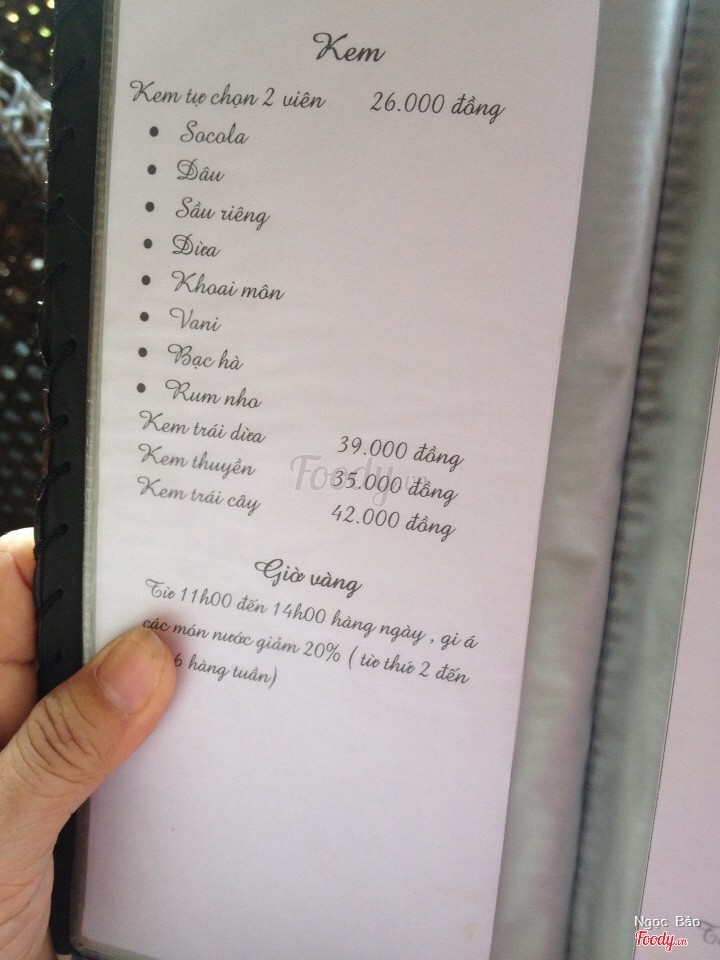 Kem
Kem tự chọn 2 viên 26.000 đồng
• Socola
• Dâu
• Sầu riêng
• Dừa
• Khoai môn
• Vani
• Bạc hà
• Rum nho
Kem trái dừa 39.000 đồng
Kem thuyền 35.000 đồng
Kem trái cây 42.000 đồng
Foody.vn
Giờ vàng
Từ 11h00 đến 14h00 hàng ngày , gi á
các món nước giảm 20% ( từ thứ 2 đến
6 hàng tuần)
Ngọc Bảo
Foody.vn